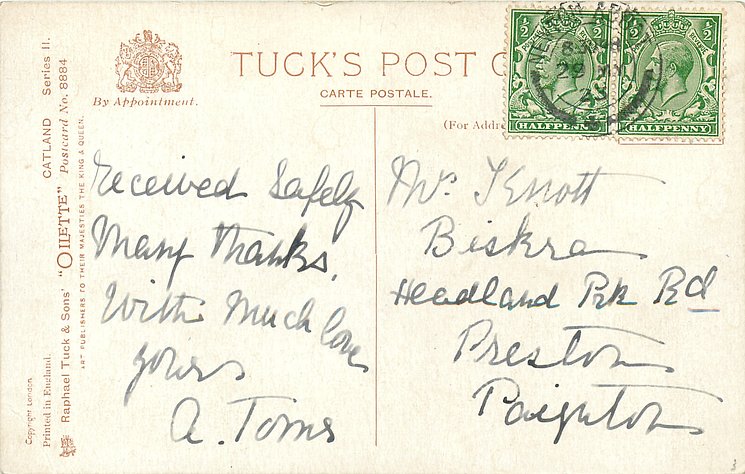 CATLAND Series II.
"OILETTE" Postcard No. 8884
Raphael Tuck & Sons'
ART PUBLISHERS TO THEIR MAJESTIES THE KING & QUEEN.
Copyright London.
Printed in England.
By Appointment.
TUCK'S POST C
CARTE POSTALE.
(For Addre
1/2 1/2
HALFPENNY
1/2 1/2
HALFPENNY
29
Received Safely
Many thanks,
With Much love
yours
A. Toms
Mrs J Knott
Biskra
Headland Prk Rd
Preston
Paignton